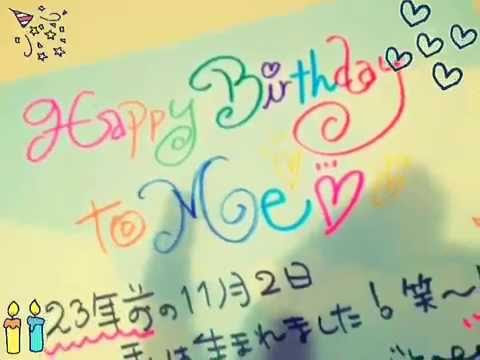 Happy Birthday
to Me
23年前の11月2日
私は生まれました！笑〜！